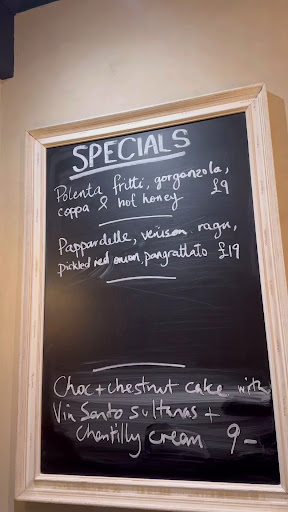 SPECIALS
Polenta fritti, gorgonzola,
coppa & hot honey £9
Pappardelle, venison ragu,
pickled red onion, pangrattato £19
Choc + chestnut cake with
Vin Santo sultanas +
Chantilly cream 9-